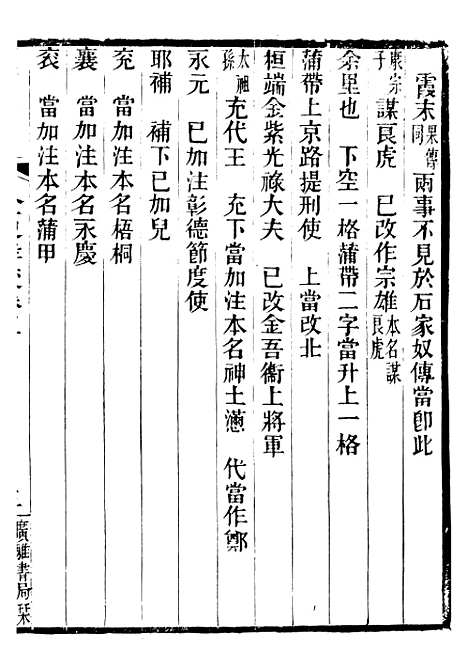 霞末果傅同兩事不見於石家奴傳當卽此
康宗子謀良虎　已改作宗雄本名謀良虎
余里也　下空一格蒲帶二字當升上一格
蒲帶上京路提刑使　上當改北
桓端金紫光祿大夫　已改金吾衞上將軍
太祖孫充代王　充下當加注本名神土懣　代當作鄭
永元　已加注彰德節度使
耶補　補下已加兒
兖　當加注本名梧桐
襄　當加注本名永慶
袞　當加注本名蒲甲
廣雅書局栞